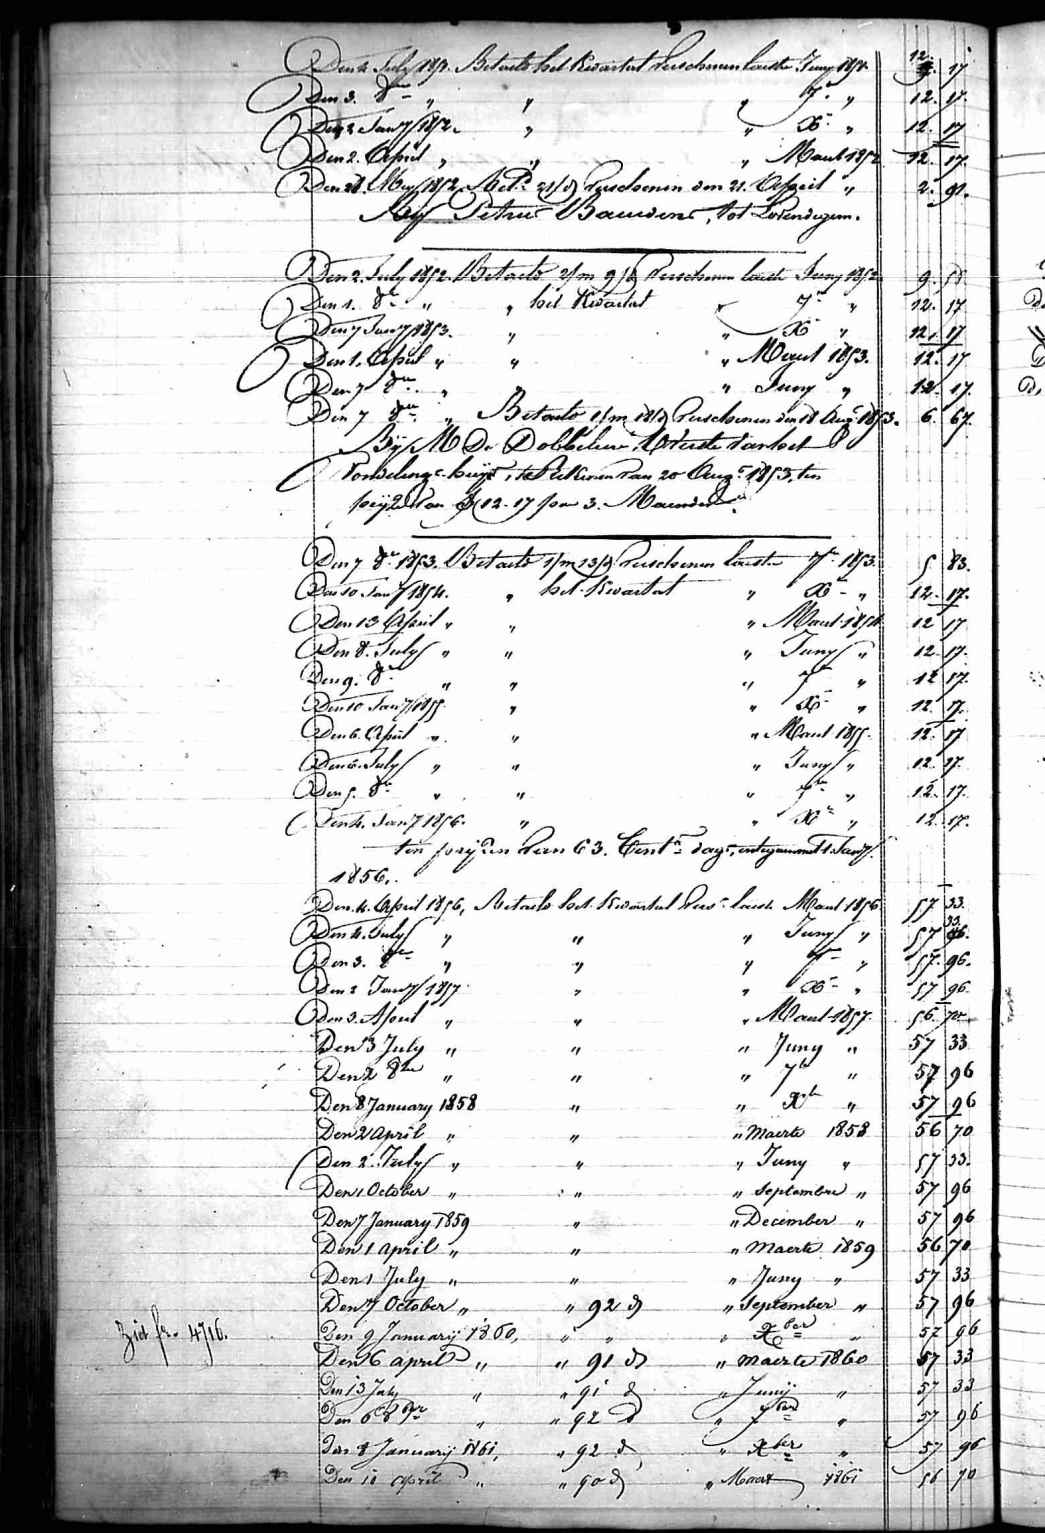 Den 4 July 1851. Betaelt het Kwartaal verschenen laeste Juny 1851. 12. 17
Den 3. 8re " " " 7re " 12. 17.
Den 2 Jany 1852. " " Xre " 12. 17
Den 2. April " " " Maert 1852 12. 17.
Den 21. Mey 1852, Bet. 21/d verschenen den 21. April " 2. 91.
Petrus Bauwens, tot Lovendegem.
Den 2. July 1852. Betaelt 2/m 9/d verschenen laeste Juny 1852 9. 51
Den 1. 8re " " het Kwartaal " 7re " 12. 17
Den 7 Jany 1853. " " Xre " 12. 17
Den 1. April " " " Maert 1853. 12. 17
Den 7 " " " Juny " 12. 17.
Den 7 8re " Betaelt 1/m 18/d verschenen den 18 Augt 1853. 6. 67.
By M De Dobbeleer
Vondelings van 20 Augt 1853, ten
pryze van 12-17 per 3. Maenden.
Den 7 8re 1853. Betaelt 1/m 13/d verschenen laeste 7re 1853. 5 83.
Den 10 Jany 1854. " het Kwartaal " Xre " 12. 17.
Den 13 April " " " Maert 1854 12 17
Den 8. July " " " Juny " 12. 17.
Den 9. 8re " " " 7re " 12 17.
Den 10 Jany 1855. " " Xre " 12. 17.
Den 6. April " " " Maert 1855. 12. 17
Den 6. July " " " Juny " 12. 17.
Den 5. 8re " " " 7re " 12. 17.
Den 4. Jany 1856. " " Xre " 12. 17.
ten pryzen van 63. Cent. daegs, 1 Jany
1856.
Den 4. April 1856, Betaelt het Kwartaal vers. laeste Maert 1856 57 33.
Den 4. July " " " Juny " 57 33.
Den 3. 8re " " " 7re " 57. 96.
Den 2 Jany 1857 " " Xre " 57 96.
Den 3. April " " " Maert 1857. 56. 70
Den 3 July " " " Juny " 57 33
Den 2 8re " " " 7re " 57 96
Den 8 January 1858 " " Xre " 57 96
Den 2 April " " " Maerte 1858 56 70
Den 2. July " " " Juny " 57 33.
Den 1 October " " " Septembre " 57 96
Den 7 January 1859 " " December " 57 96
Den 1 April " " " Maerte 1859 56 70
Den 1 July " " " Juny " 57 33
Den 7 October " " 92 d " September " 57 96
Zid fr. 4716.
Den 9 January 1860, " " " Xber " 57 96
Den 6 April " " 91 d " Maerte 1860 57 33
Den 13 July " " 91 d " Junij " 57 33
Den 6 8re " " 92 d " 7ber " 57 96
Den 8 January 1861, " 92 d " Xber " 57 96
Den 11 April " " 90 d " Maart 1861 56 70